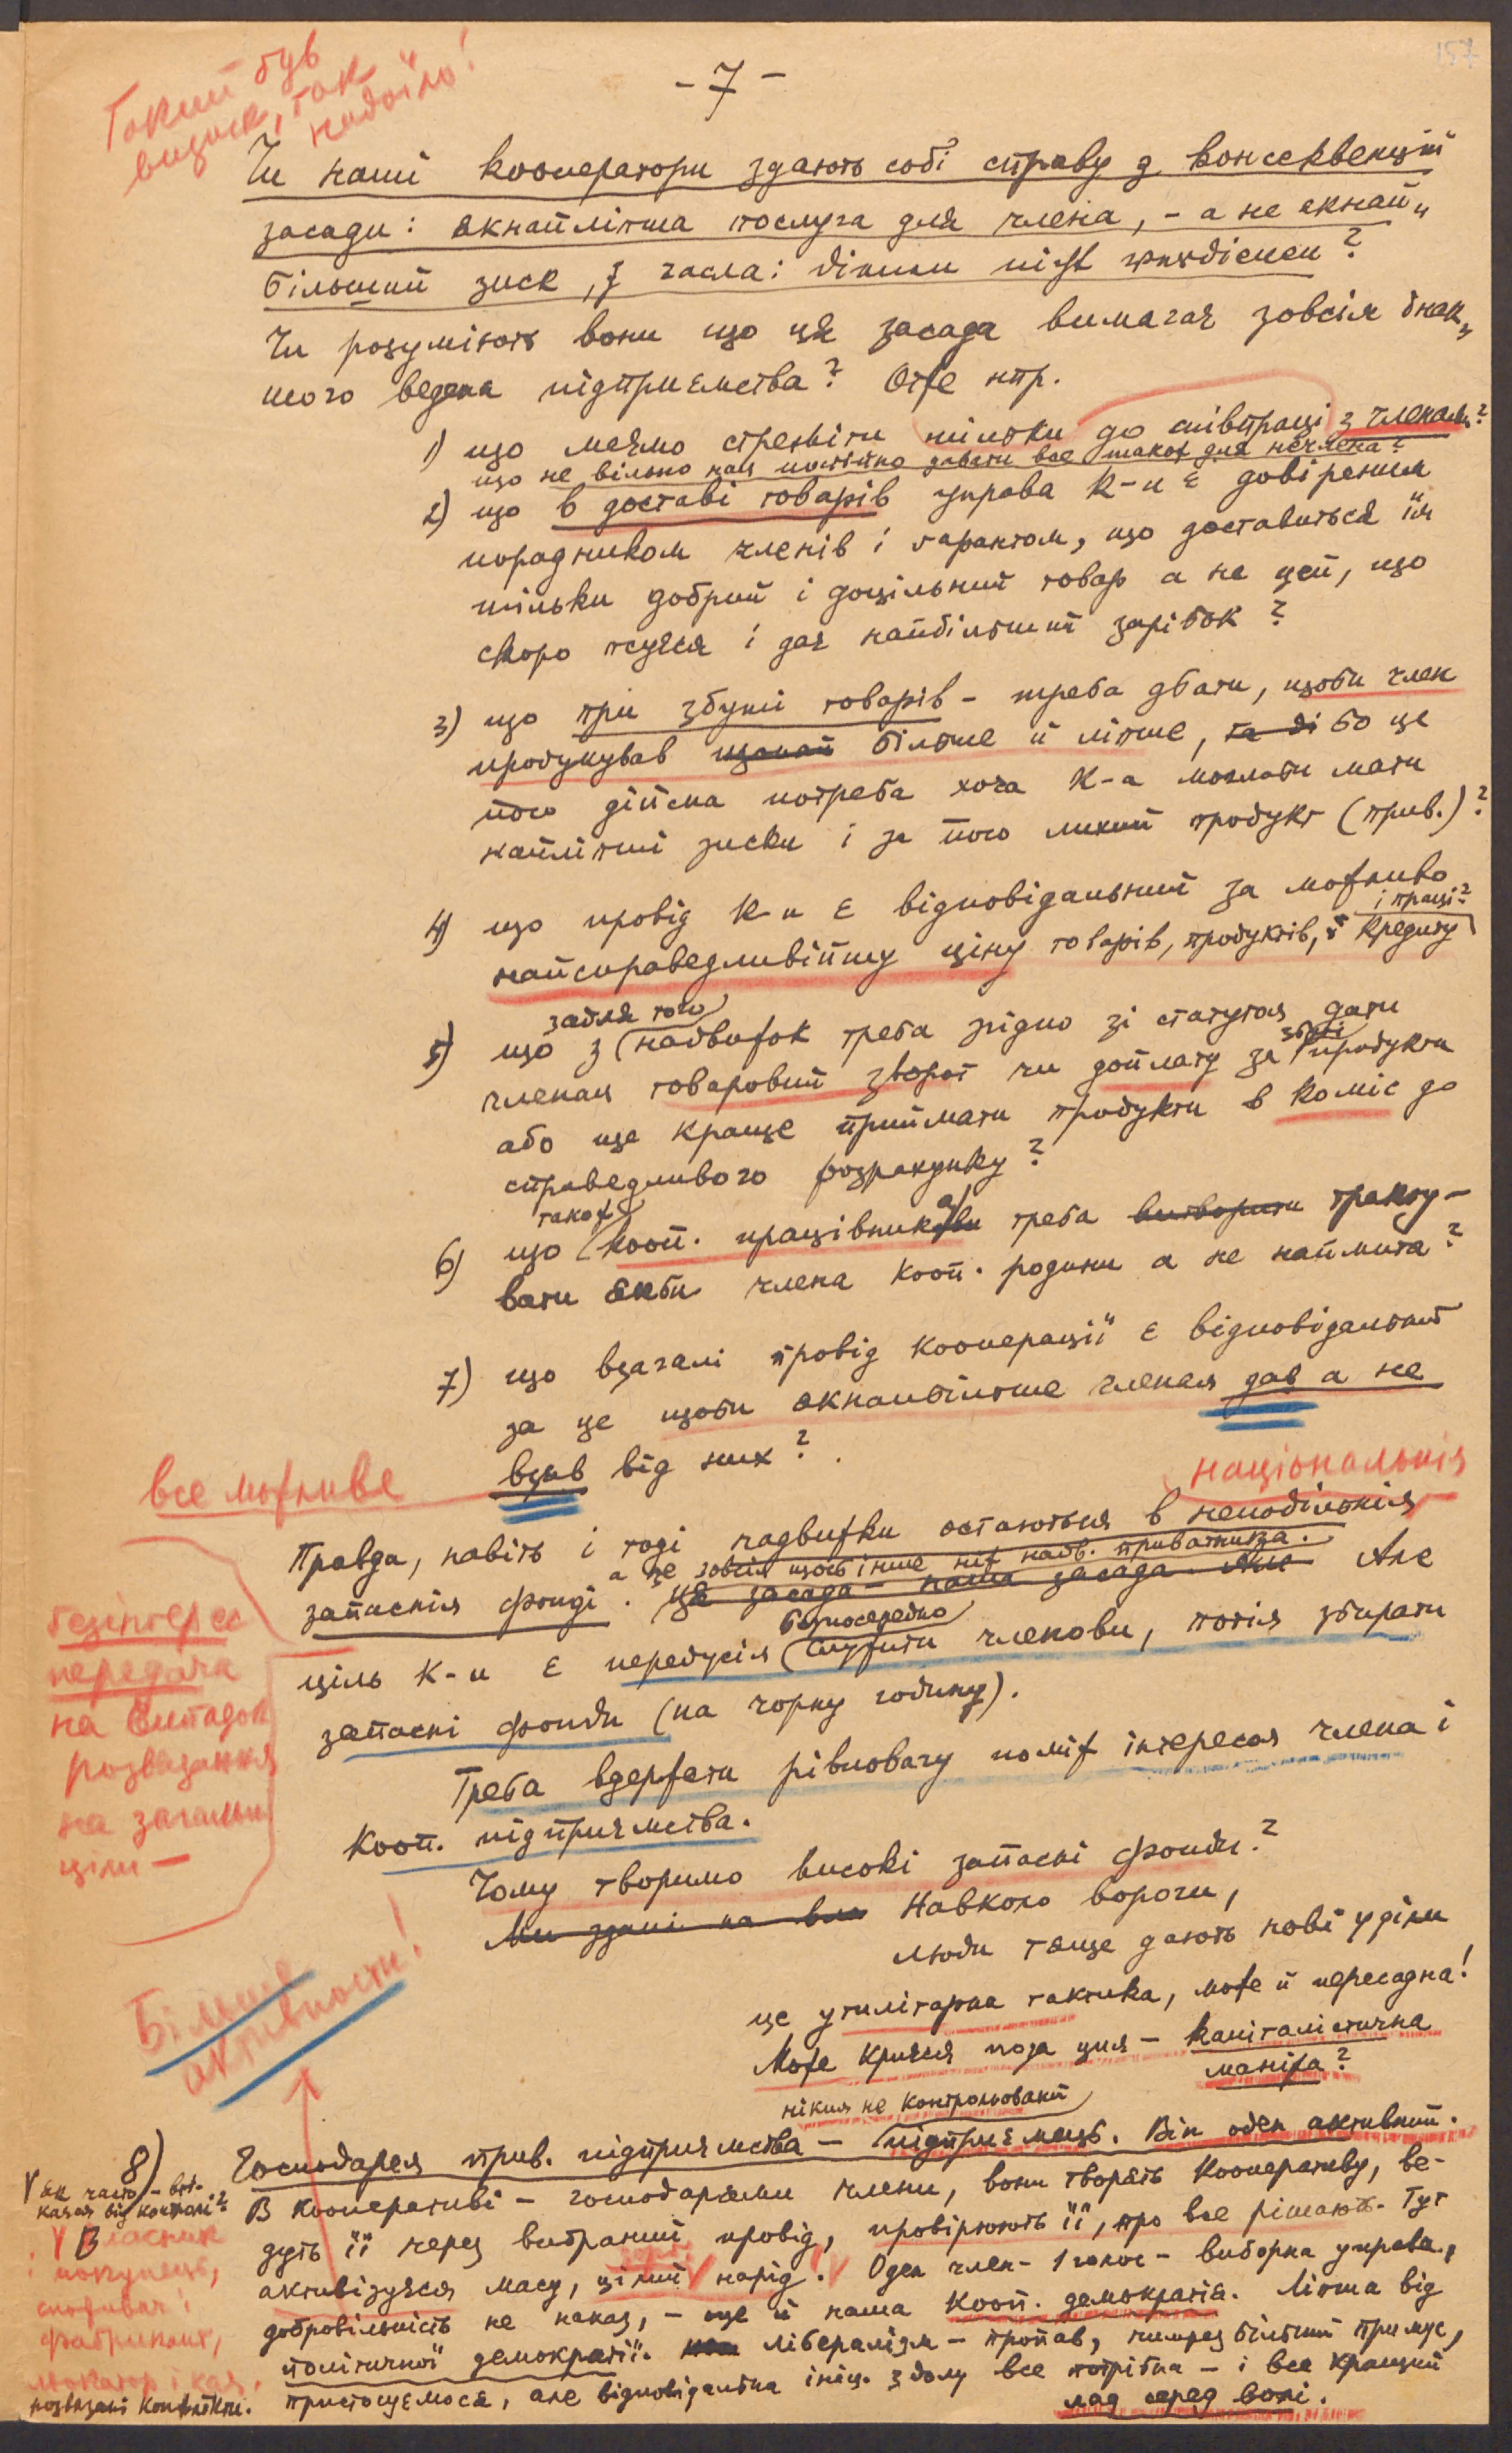 157
- 7 -
Такий був
визиск, так
надоїло!
Чи наші кооператори здають собі справу з консеквенцій
засади: якнайліпша послуга для члена, - а не якнай„
більший зиск, з гасла: дінен ніхт фердінен?
Чи розуміють вони що ця засада вимагає зовсім інак„
шого ведення підприємства? Отже нпр.
1) що маємо стреміти тільки до співпраці з членами?
що не вільно нам постійно давати все також для нечлена?
2) що в доставі товарів управа к-и є довіреним
порадником членів і гарантом, що доставиться їм
тільки добрий і доцільний товар а не цей, що
скоро псуєся і дає найбільший зарібок?
3) що при збуті товарів - треба дбати, щоби член
продукував щонай більше й ліпше, та ді бо це
його дійсна потреба хоча к-а моглаби мати
найліпші зиски і за його лихий продукт (прив.)?
4) що провід к-и є відповідальний за можливо
і праці?
найсправедливійшу ціну товарів, продуктів, і кредиту
задля того
5) що з надвижок треба згідно зі статутом дати
членам товаровий зворот чи доплату за збіжі продукти
або ще краще приймати продукти в коміс до
справедливого розрахунку?
також
6) що кооп. працівника треба витворити тракту-
вати якби члена кооп. родини а не наймита?
7) що взагалі провід кооперації є відповідальний
за це щоби якнайбільше членам дав а не
взяв від них?
все можливе
національнім
Правда, навіть і тоді надвижки остаються в неподільнім
а це зовсім щось інше ніж надв. приватника.
запаснім фонді. Ця засада - наша засада. Але Але
безпосередно
ціль к-и є передусім служити членови, потім збирати
запасні фонди (на чорну годину).
безінтерес
передача
на випадок
розвязання
на загальні
ціли —
Треба вдержати рівновагу поміж інтересом члена і
кооп. підприємства.
Чому творимо високі запасні фонди?
Ми здані на вла Навколо вороги,
люди тяще дають нові уділи
це утилітарна тактика, може й пересадна!
Може криєся поза цим - капіталістична
манія?
Більше
активности!
ніким не контрольований
8) Господарем прив. підприємства - підприємець. Він оден активний.
В кооперативі - господарями члени, вони творять кооперативу, ве-
дуть її через вибраний провід, провірюють її, про все рішають. Тут
активізуєся масу, цілий нарід. Оден член - 1 голос - виборна управа,
добровільність не наказ, - оце й наша кооп. демократія. Ліпша від
політичної демократії. Лібералізм - пропав, чимраз більший примус,
пристосуємося, але відповідальна ініц. з долу все потрібна - і все кращий
лад серед волі.
V власник
і покупець,
споживач і
фабрикант,
розвязані конфлікти.